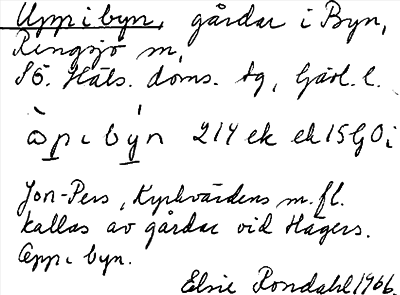 Upp i byn, gårdar i Byn,
Rengsjö sn,
Sö. Häls. doms. tg, Gävl. l.
àp ı býn 214 ek ek 15 GO i
Jon-Pers, Kyrkvärdens m. fl.
kallas av gårdar vid Hagers.
Opp i byn.
Elsie Rondahl 1966.